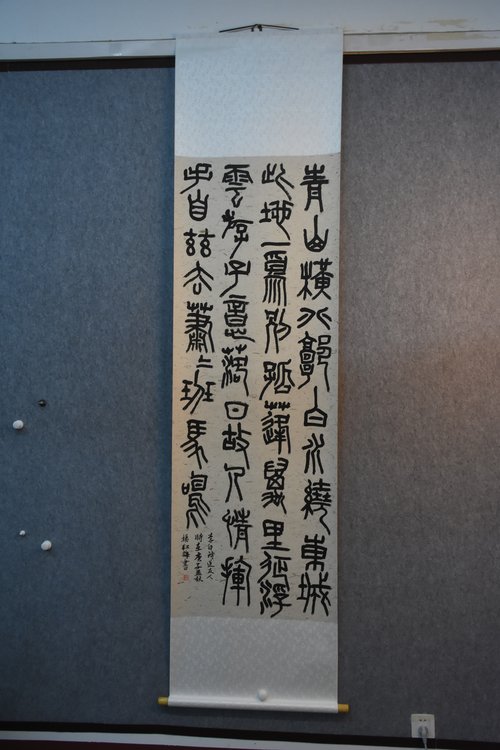 青山橫北郭白水繞東城
此地一爲別孤蓬萬里征浮
雲游子意落日故人情揮
手自茲去蕭〻班馬鳴
李白詩送友人
時在庚子孟秋
書